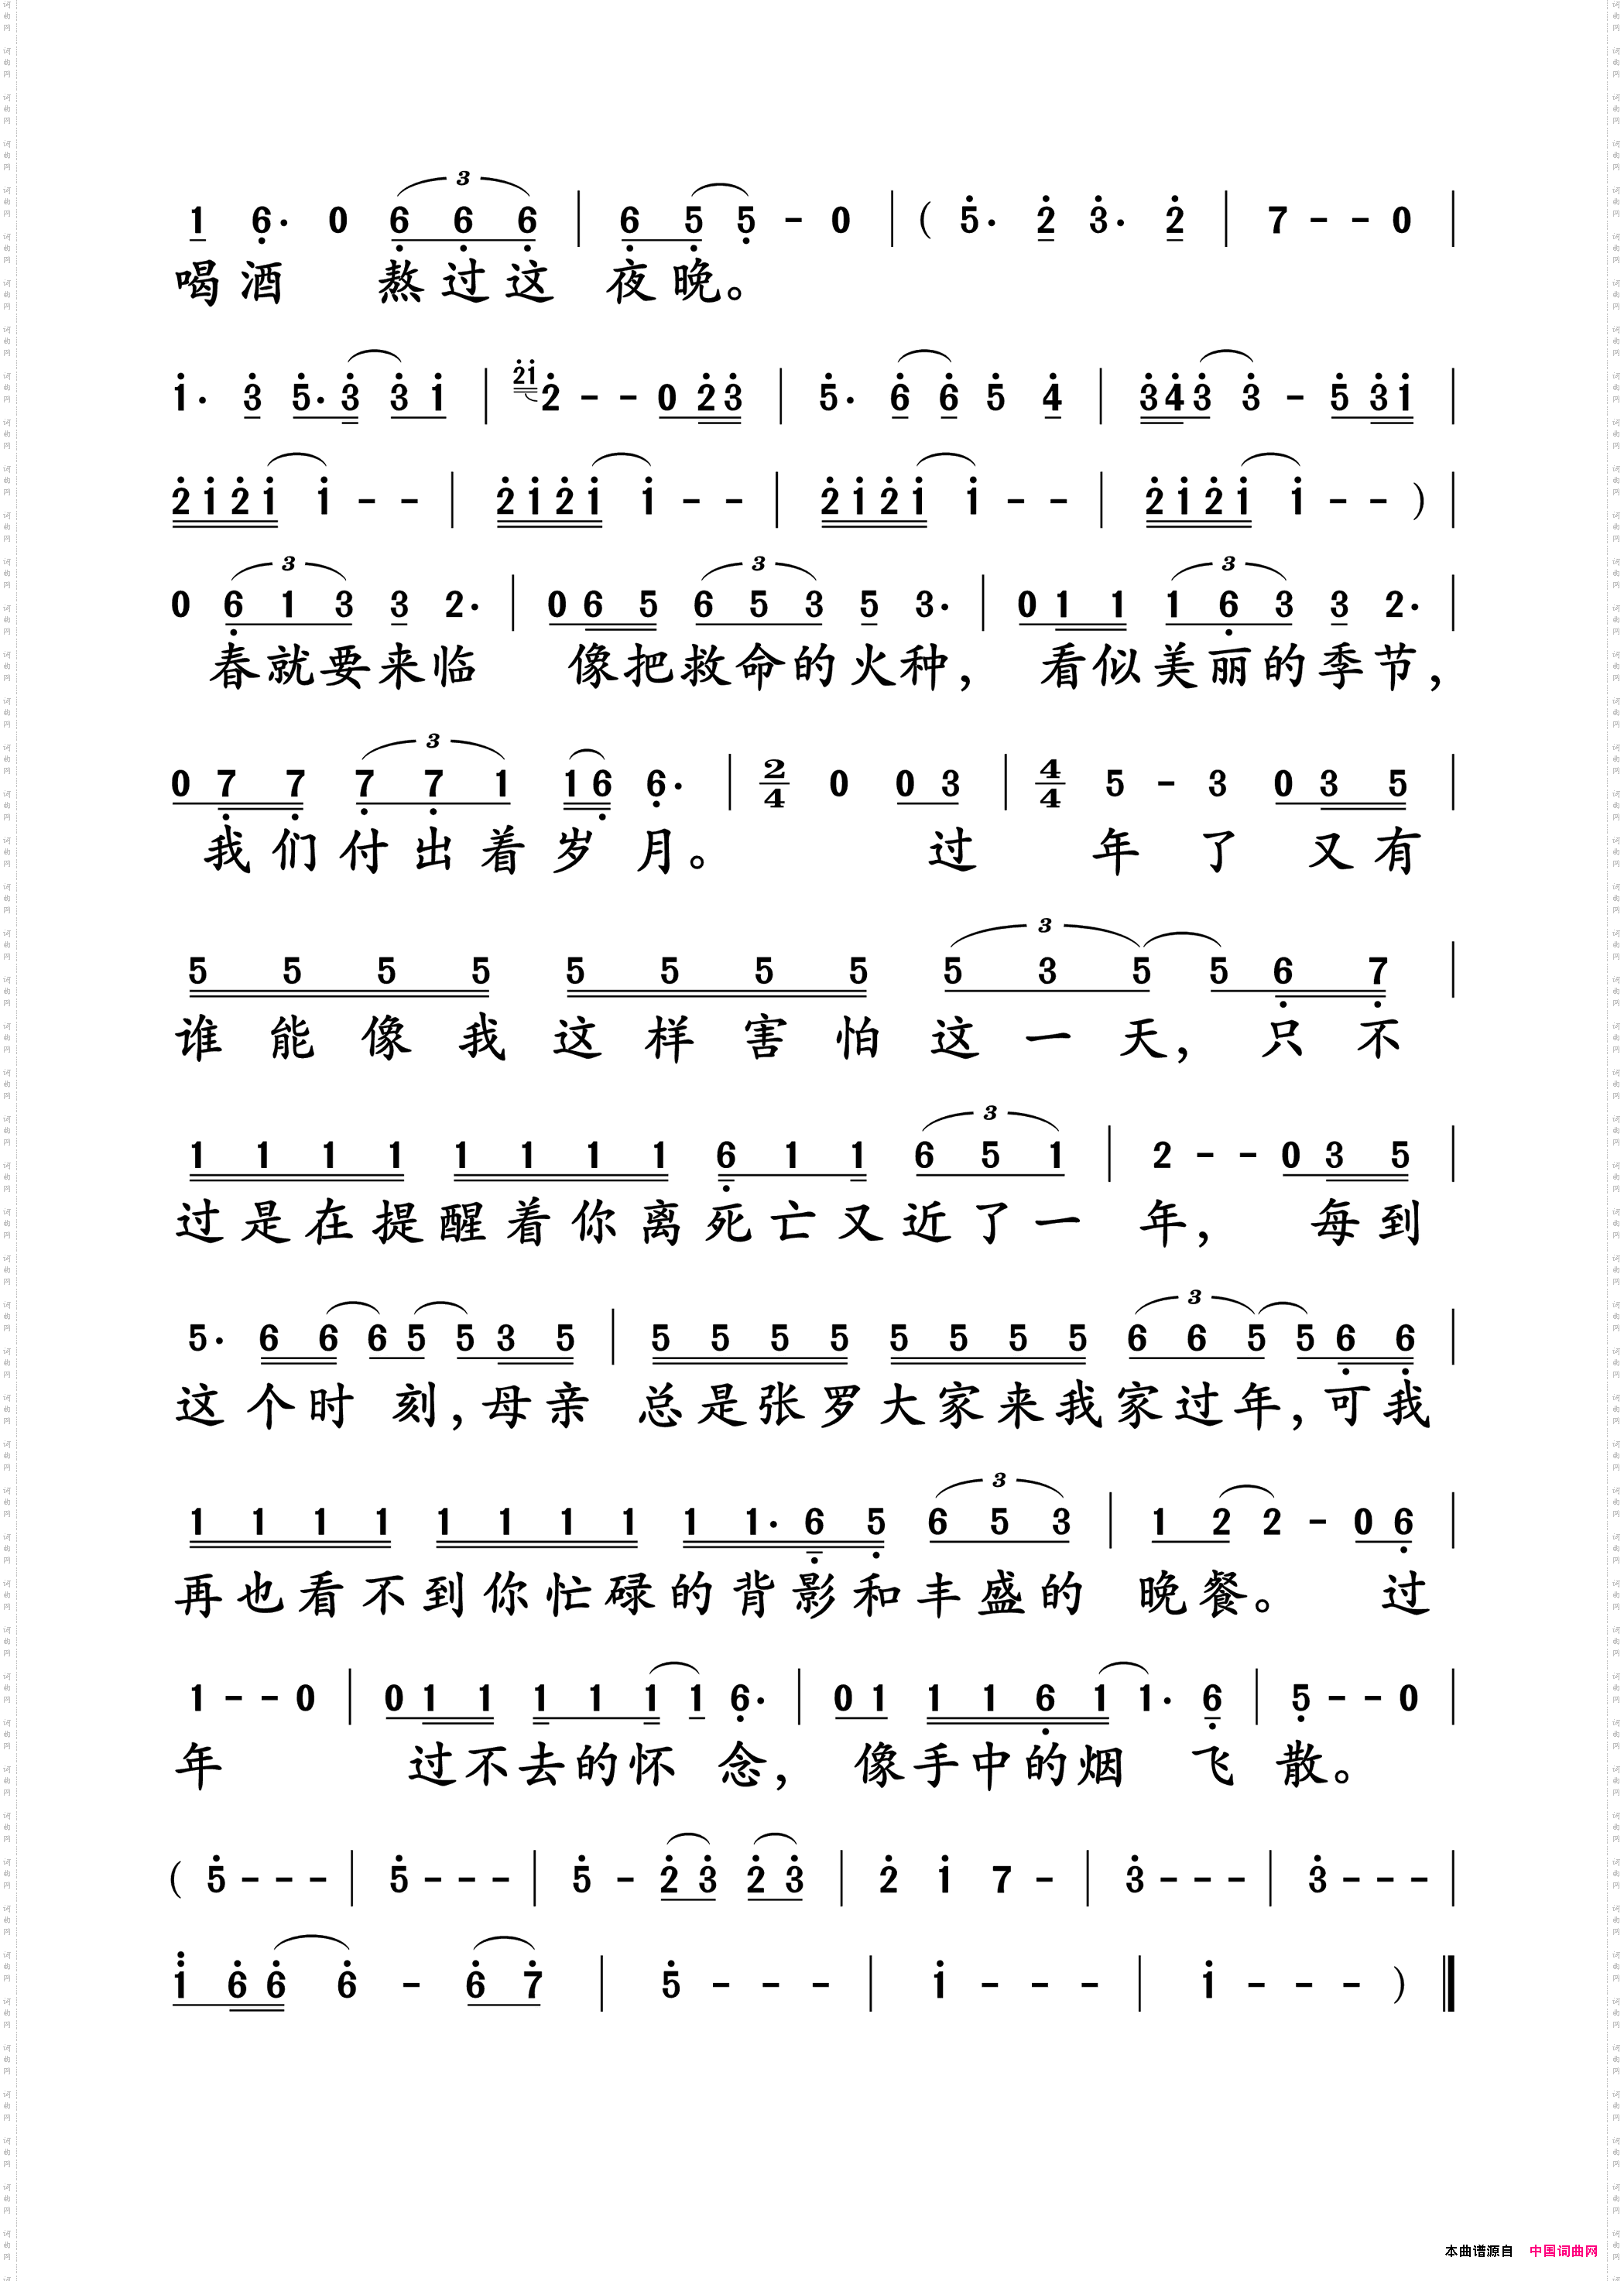 1 6· 0 6 6 6 | 6 5 5 - 0 | ( 5· 2 3· 2 | 7 - - 0 |
喝酒 熬过这 夜晚。
1· 3 5·3 3 1 | 21 2 - - 0 23 | 5· 6 6 5 4 | 343 3 - 5 31 |
2121 1 - - | 2121 1 - - | 2121 1 - - | 2121 1 - - ) |
0 6 1 3 3 2· | 0 6 5 6 5 3 5 3· | 0 1 1 1 6 3 3 2· |
春就要来临 像把救命的火种, 看似美丽的季节,
0 7 7 7 7 1 16 6· | 2/4 0 0 3 | 4/4 5 - 3 0 3 5 |
我们付出着岁月。 过 年 了 又有
5 5 5 5 5 5 5 5 5 3 5 5 6 7 |
谁能像我这样害怕这一天, 只不
1 1 1 1 1 1 1 1 6 1 1 6 5 1 | 2 - - 0 3 5 |
过是在提醒着你离死亡又近了一 年, 每到
5· 6 6 6 5 5 3 5 | 5 5 5 5 5 5 5 5 6 6 5 5 6 6 |
这个时刻,母亲 总是张罗大家来我家过年,可我
1 1 1 1 1 1 1 1 1 1· 6 5 6 5 3 | 1 2 2 - 0 6 |
再也看不到你忙碌的背影和丰盛的 晚餐。 过
1 - - 0 | 0 1 1 1 1 1 1 6· | 0 1 1 1 6 1 1· 6 | 5 - - 0 |
年 过不去的怀念, 像手中的烟飞散。
( 5 - - - | 5 - - - | 5 - 2 3 2 3 | 2 1 7 - | 3 - - - | 3 - - - |
1 6 6 6 - 6 7 | 5 - - - | 1 - - - | 1 - - - )
本曲谱源自 中国词曲网